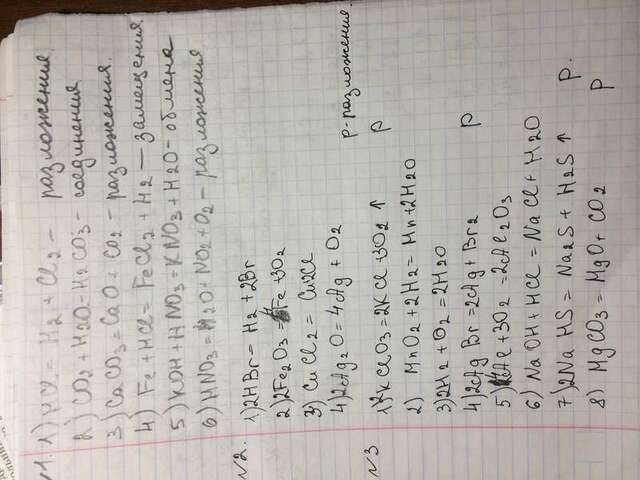 №1. 1) HCl = H2 + Cl2 - разложения.
2) CO2 + H2O = H2CO3 - соединения
3) CaCO3 = CaO + CO2 - разложения.
4) Fe + HCl = FeCl2 + H2 — замещения
5) KOH + HNO3 = KNO3 + H2O - обмена
6) HNO3 = H2O + NO2 + O2 - разложения
№2. 1) 2HBr = H2 + 2Br
2) 2Fe2O3 = Fe + 3O2
3) CuCl2 = Cu2Cl
4) 2Ag2O = 4Ag + O2
р-разложения.
№3 1) 2KClO3 = 2KCl + 3O2 ↑ р
2) MnO2 + 2H2 = Mn + 2H2O
3) 2H2 + O2 = 2H2O
4) 2AgBr = 2Ag + Br2 р
5) 4Al + 3O2 = 2Al2O3
6) NaOH + HCl = NaCl + H2O
7) 2NaHS = Na2S + H2S ↑ р.
8) MgCO3 = MgO + CO2 р